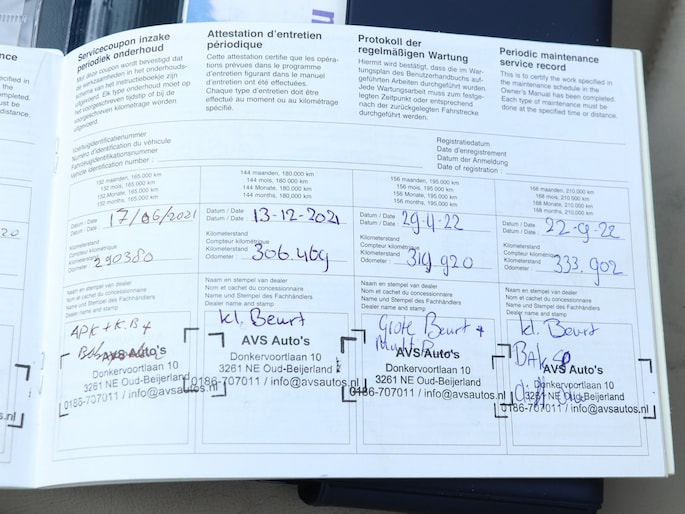 Servicecoupon inzake
periodiek onderhoud
Met deze coupon wordt bevestigd dat
de werkzaamheden in het onderhouds-
schema van het instructieboekje zijn
uitgevoerd. Elk type onderhoud moet op
het voorgeschreven tijdstip of bij de
voorgeschreven kilometrage worden
uitgevoerd.
Attestation d'entretien
périodique
Cette attestation certifie que les opéra-
tions prévues dans le programme
d'entretien figurant dans le manuel
d'entretien ont été effectuées.
Chaque type d'entretien doit être
effectué au moment ou au kilométrage
spécifié.
Protokoll der
regelmäßigen Wartung
Hiermit wird bestätigt, dass die im War-
tungsplan des Benutzerhandbuchs auf-
geführten Arbeiten durchgeführt wurden.
Jede Wartungsarbeit muss zum festge-
legten Zeitpunkt oder entsprechend
nach der zurückgelegten Fahrstrecke
durchgeführt werden.
Periodic maintenance
service record
This is to certify the work specified in
the maintenance schedule in the
Owner's Manual has been completed.
Each type of maintenance must be
done at the specified time or distance.
Voertuigidentificatienummer
Numéro d'identification du véhicule
Fahrzeugidentifikationsnummer
Vehicle identification number :
Registratiedatum
Date d'enregistrement
Datum der Anmeldung
Date of registration :
132 maanden, 165.000 km
132 mois, 165.000 km
132 Monate, 165.000 km
132 months, 165.000 km
144 maanden, 180.000 km
144 mois, 180.000 km
144 Monate, 180.000 km
144 months, 180.000 km
156 maanden, 195.000 km
156 mois, 195.000 km
156 Monate, 195.000 km
156 months, 195.000 km
168 maanden, 210.000 km
168 mois, 210.000 km
168 Monate, 210.000 km
168 months, 210.000 km
Datum / Date
Datum / Date : 17/06/2021
Kilometerstand
Compteur kilométrique
Kilometerstand
Odometer : 290380
Datum / Date
Datum / Date : 13-12-2021
Kilometerstand
Compteur kilométrique
Kilometerstand
Odometer : 306.469
Datum / Date
Datum / Date : 29-4-22
Kilometerstand
Compteur kilométrique
Kilometerstand
Odometer : 319.920
Datum / Date
Datum / Date : 22-9-22
Kilometerstand
Compteur kilométrique
Kilometerstand
Odometer : 333.902
Naam en stempel van dealer
Nom et cachet du concessionnaire
Name und Stempel des Fachhändlers
Dealer name and stamp
APK + K.B +
AVS Auto's
Donkervoortlaan 10
3261 NE Oud-Beijerland
0186-707011 / info@avsautos.nl
Naam en stempel van dealer
Nom et cachet du concessionnaire
Name und Stempel des Fachhändlers
Dealer name and stamp
kl. Beurt
AVS Auto's
Donkervoortlaan 10
3261 NE Oud-Beijerland
0186-707011 / info@avsautos.nl
Naam en stempel van dealer
Nom et cachet du concessionnaire
Name und Stempel des Fachhändlers
Dealer name and stamp
Grote Beurt +
AVS Auto's
Donkervoortlaan 10
3261 NE Oud-Beijerland
0186-707011 / info@avsautos.nl
Naam en stempel van dealer
Nom et cachet du concessionnaire
Name und Stempel des Fachhändlers
Dealer name and stamp
kl. Beurt
AVS Auto's
Donkervoortlaan 10
3261 NE Oud-Beijerland
0186-707011 / info@avsautos.nl